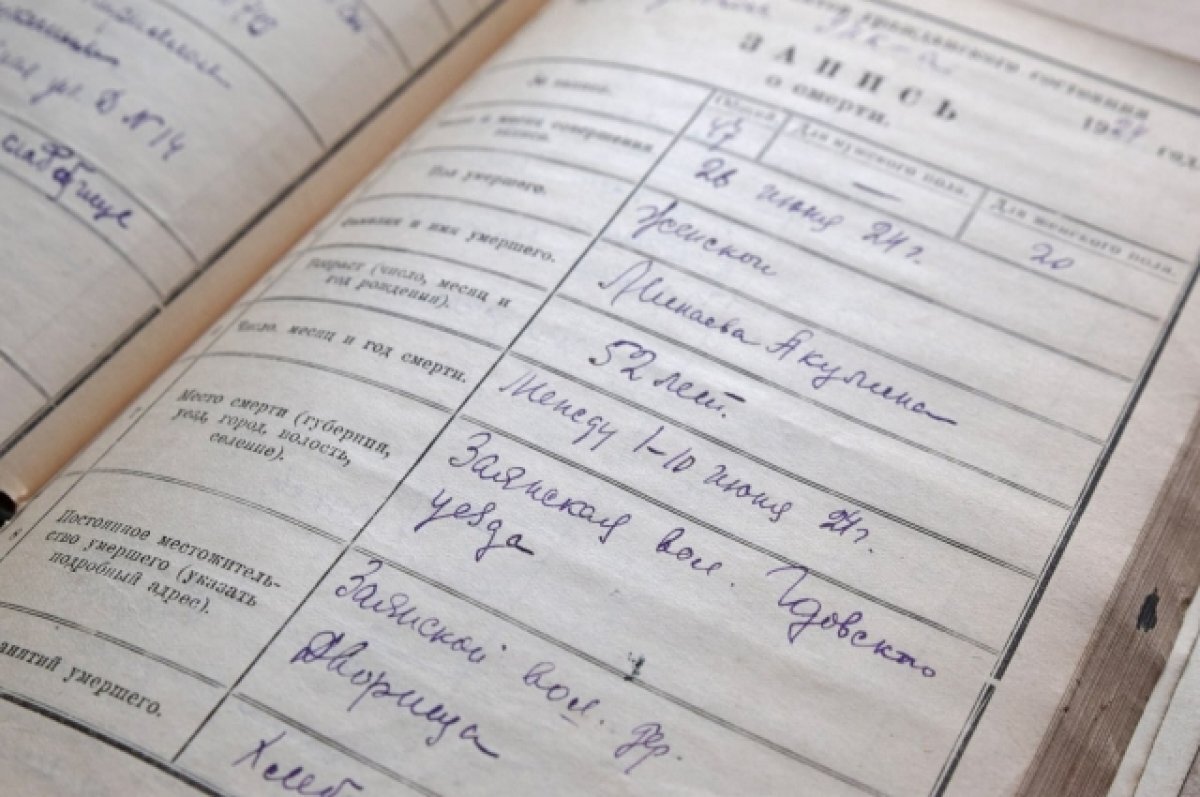 ул. Д № 14
гражданского состояния
ЗАПИСЬ
о смерти.
1924 год
№ записи.
Общий
Для мужского пола.
Для женского пола.
43
—
20
и место совершения записи.
26 июня 24 г.
Пол умершего.
Женской
Фамилия и имя умершего.
Минаева Акулина
Возраст (число, месяц и
год рождения).
52 лет.
Число, месяц и год смерти.
Между 1-10 июня 24 г.
7
Место смерти (губерния,
уезд, город, волость,
селение).
Заянская вол. Гдовского
уезда
8
Постоянное местожитель-
ство умершего (указать
подробный адрес).
Заянской вол. дер.
Дворища
занятий умершего.
Хлеб